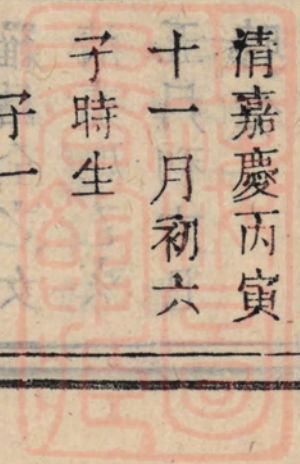 清嘉慶丙寅
十一月初六
子時生
子一